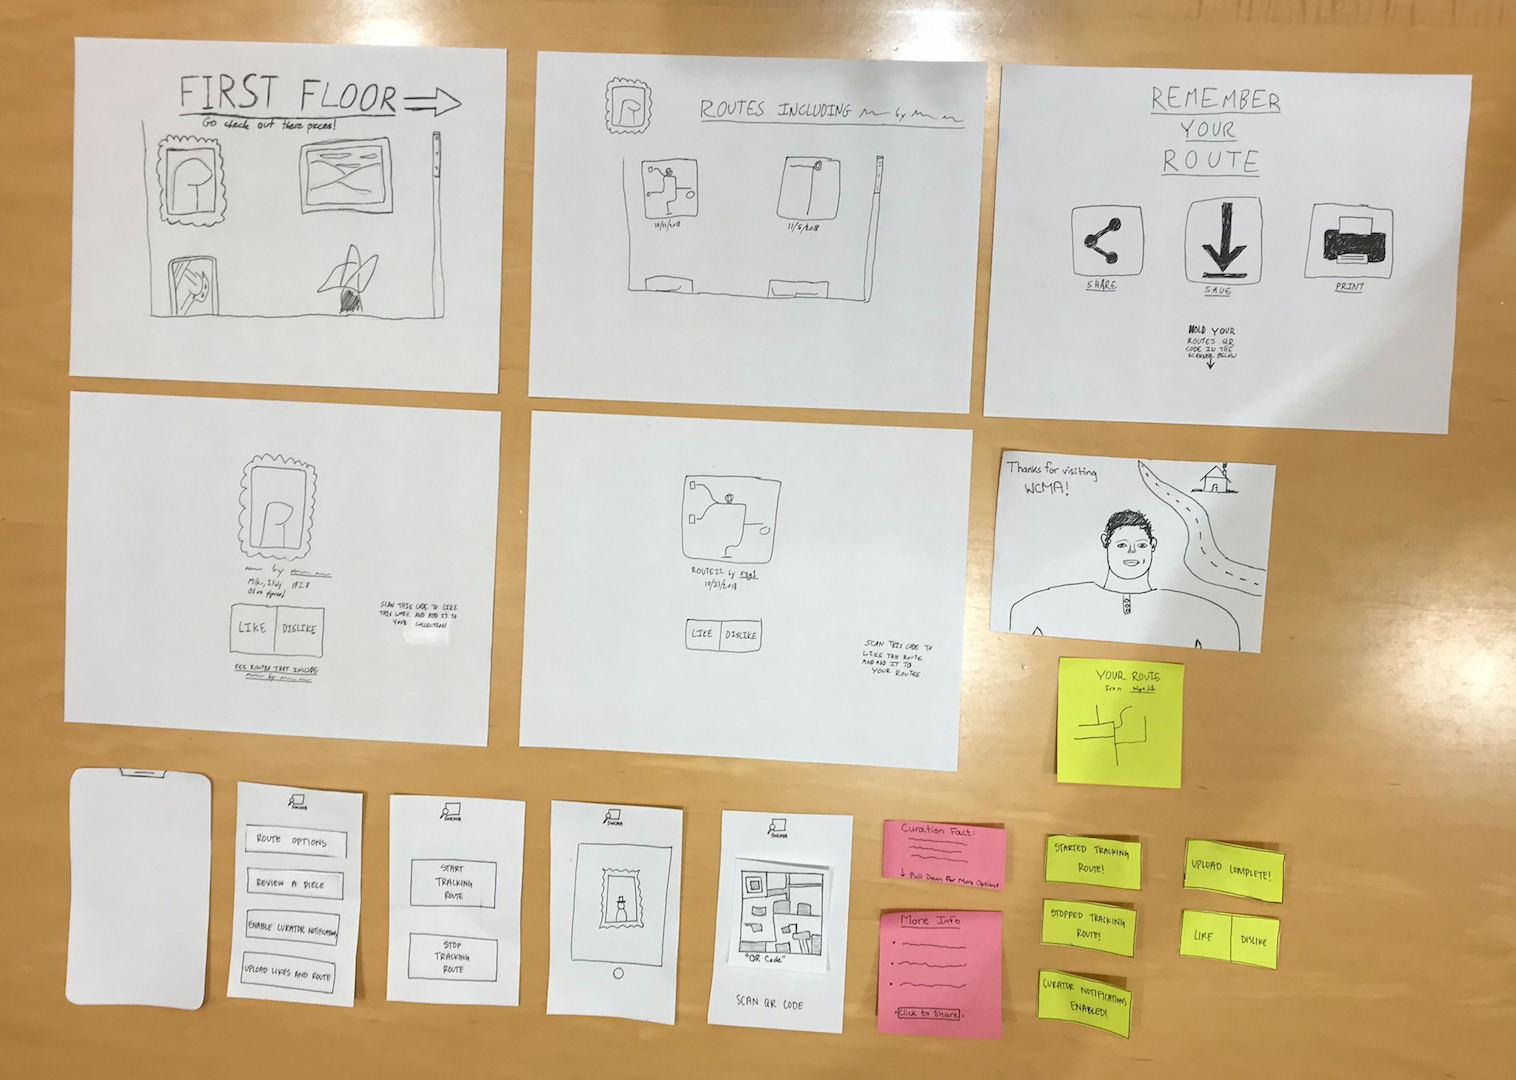 FIRST FLOOR
Go check out these pieces!
ROUTES INCLUDING
by
10/21/2018
11/5/2018
REMEMBER
YOUR
ROUTE
SHARE
SAVE
PRINT
HOLD YOUR
ROUTE'S QR
CODE IN THE
SCANNER BELOW
by
Milan, Italy 1928
LIKE
DISLIKE
SEE ROUTES THAT INCLUDE
by
SCAN THIS CODE TO LIKE
THIS WORK AND ADD IT TO
YOUR COLLECTION
ROUTE22 by
10/21/2018
LIKE
DISLIKE
SCAN THIS CODE TO
LIKE THIS ROUTE
AND ADD IT TO
YOUR ROUTES
Thanks for visiting
WCMA!
YOUR ROUTE
from
SWCMA
ROUTE OPTIONS
REVIEW A PIECE
ENABLE CURATOR NOTIFICATIONS
UPLOAD LIKES AND ROUTE
SWCMA
START
TRACKING
ROUTE
STOP
TRACKING
ROUTE
SWCMA
SWCMA
"QR Code"
SCAN QR CODE
Curation Fact:
Pull Down for More Options
More Info
Click to Share
STARTED TRACKING
ROUTE!
STOPPED TRACKING
ROUTE!
CURATOR NOTIFICATIONS
ENABLED!
UPLOAD COMPLETE!
LIKE
DISLIKE